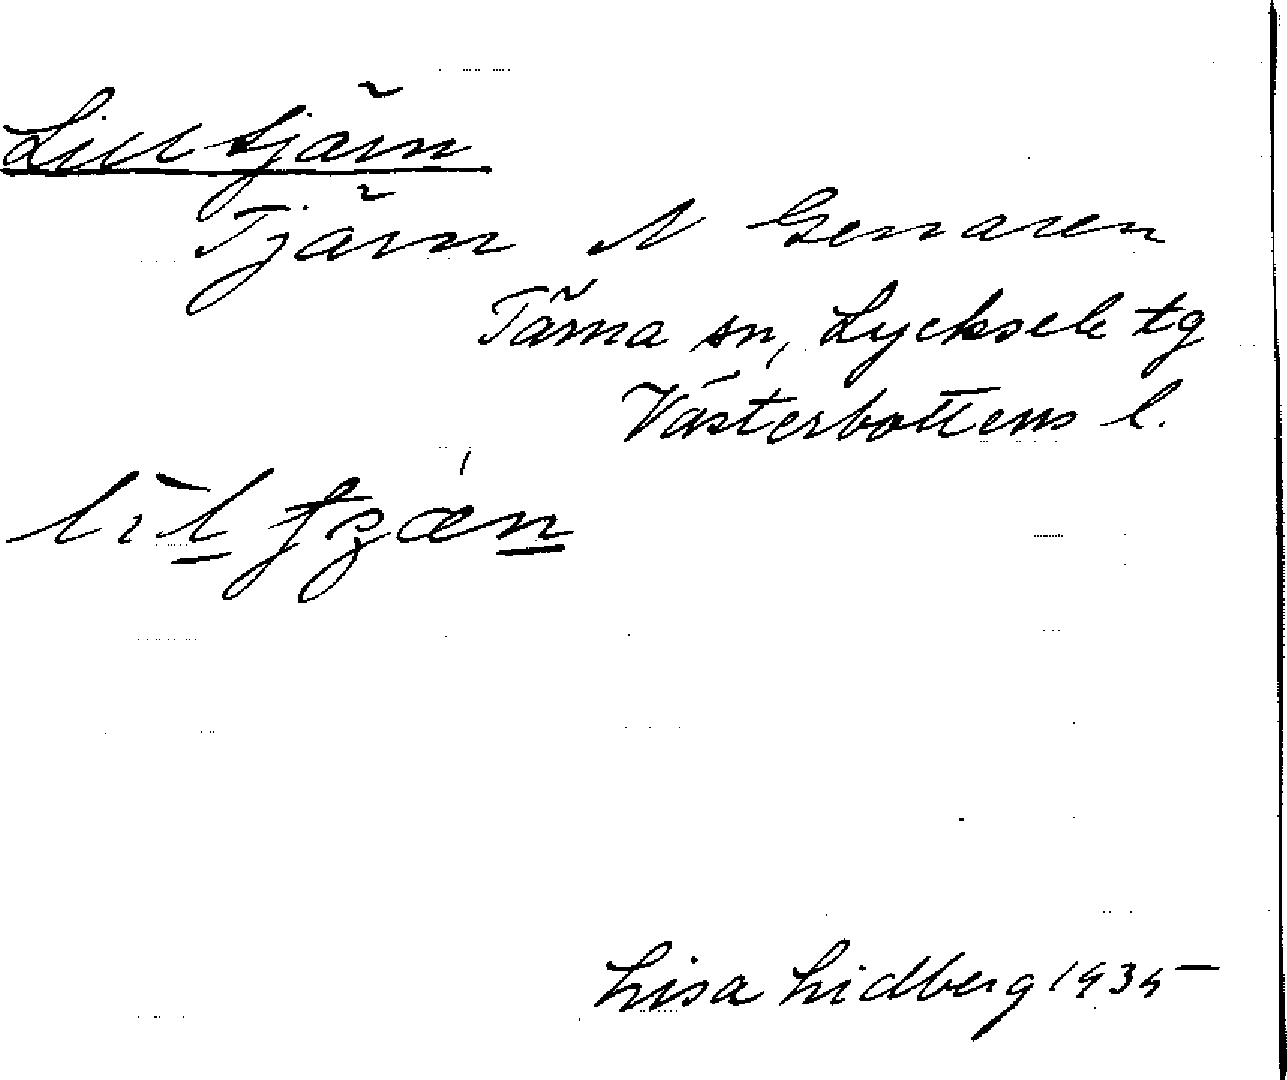 Lilltjärn
Tjärn N Gensaren
Tärna sn, Lycksele tg
Västerbottens l.
Lisa Lidberg 1935